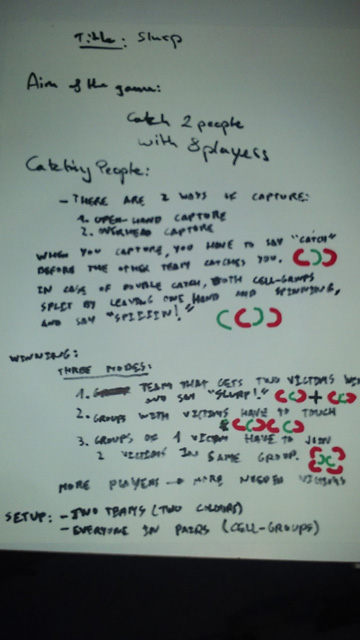 Title: Slurp
Aim of the game:
Catch 2 people
with 8 players
Catching People:
- THERE ARE 2 WAYS OF CAPTURE:
1. OPEN-HAND CAPTURE
2. OVERHEAD CAPTURE
WHEN YOU CAPTURE, YOU HAVE TO SAY "CATCH"
BEFORE THE OTHER TEAM CATCHES YOU.
IN CASE OF DOUBLE CATCH, BOTH CELL-GROUPS
SPLIT BY LEAVING ONE HAND AND SPINNING,
AND SAY "SPIIIIN!"
WINNING:
THREE MODES:
1. TEAM THAT GETS TWO VICTIMS WIN
AND SAY "SLURP!" +
2. GROUPS WITH VICTIMS HAVE TO TOUCH
3. GROUPS OF 1 VICTIM HAVE TO JOIN
2 VICTIMS IN SAME GROUP.
MORE PLAYERS → MORE NEEDED VICTIMS
SETUP: - TWO TEAMS (TWO COLOURS)
- EVERYONE IN PAIRS (CELL-GROUPS)